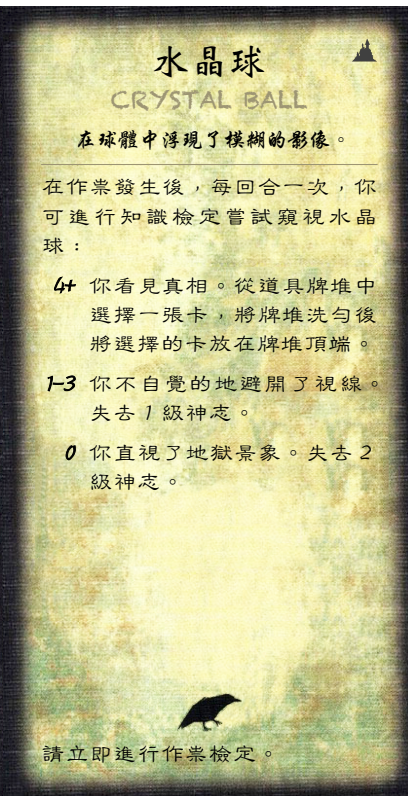 水晶球
CRYSTAL BALL
在球體中浮現了模糊的影像。
在作祟發生後，每回合一次，你
可進行知識檢定嘗試窺視水晶
球：
4+ 你看見真相。從道具牌堆中
選擇一張卡，將牌堆洗勻後
將選擇的卡放在牌堆頂端。
1-3 你不自覺的地避開了視線。
失去 1 級神志。
0 你直視了地獄景象。失去 2
級神志。
請立即進行作祟檢定。